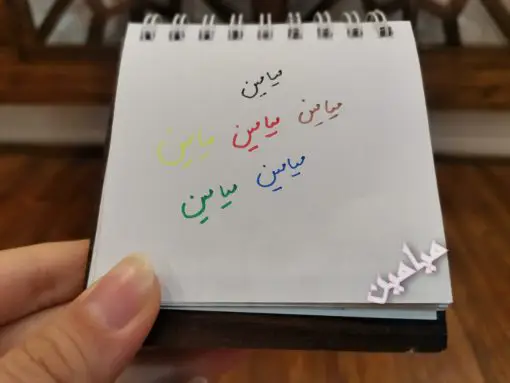 ميامين
ميامين ميامين ميامين
ميامين ميامين
ميامين